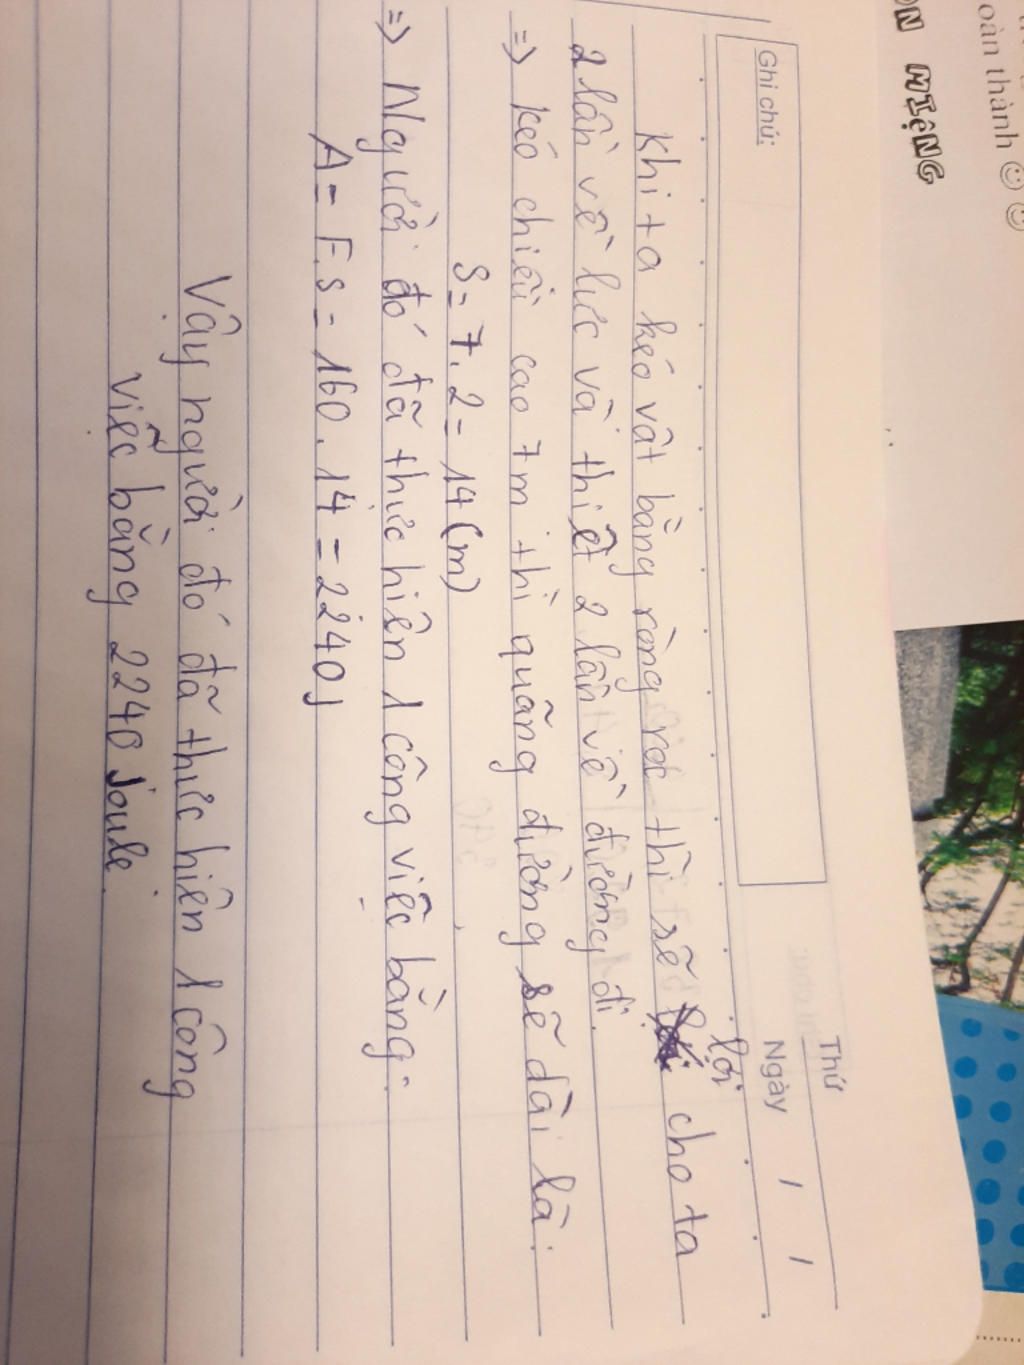 oàn thành ☺ ☺
ỌN MIỆNG
Thứ
Ngày / /
Ghi chú:
Khi ta kéo vật bằng ròng rọc thì sẽ lợi cho ta
2 lần về lực và thiệt 2 lần về đường đi.
=> kéo chiều cao 7m thì quãng đường sẽ dài là:
S = 7.2 = 14 (m)
=> Người đó đã thực hiện 1 công việc bằng:
A = F.s = 160.14 = 2240J
Vậy người đó đã thực hiện 1 công
việc bằng 2240 Joule.